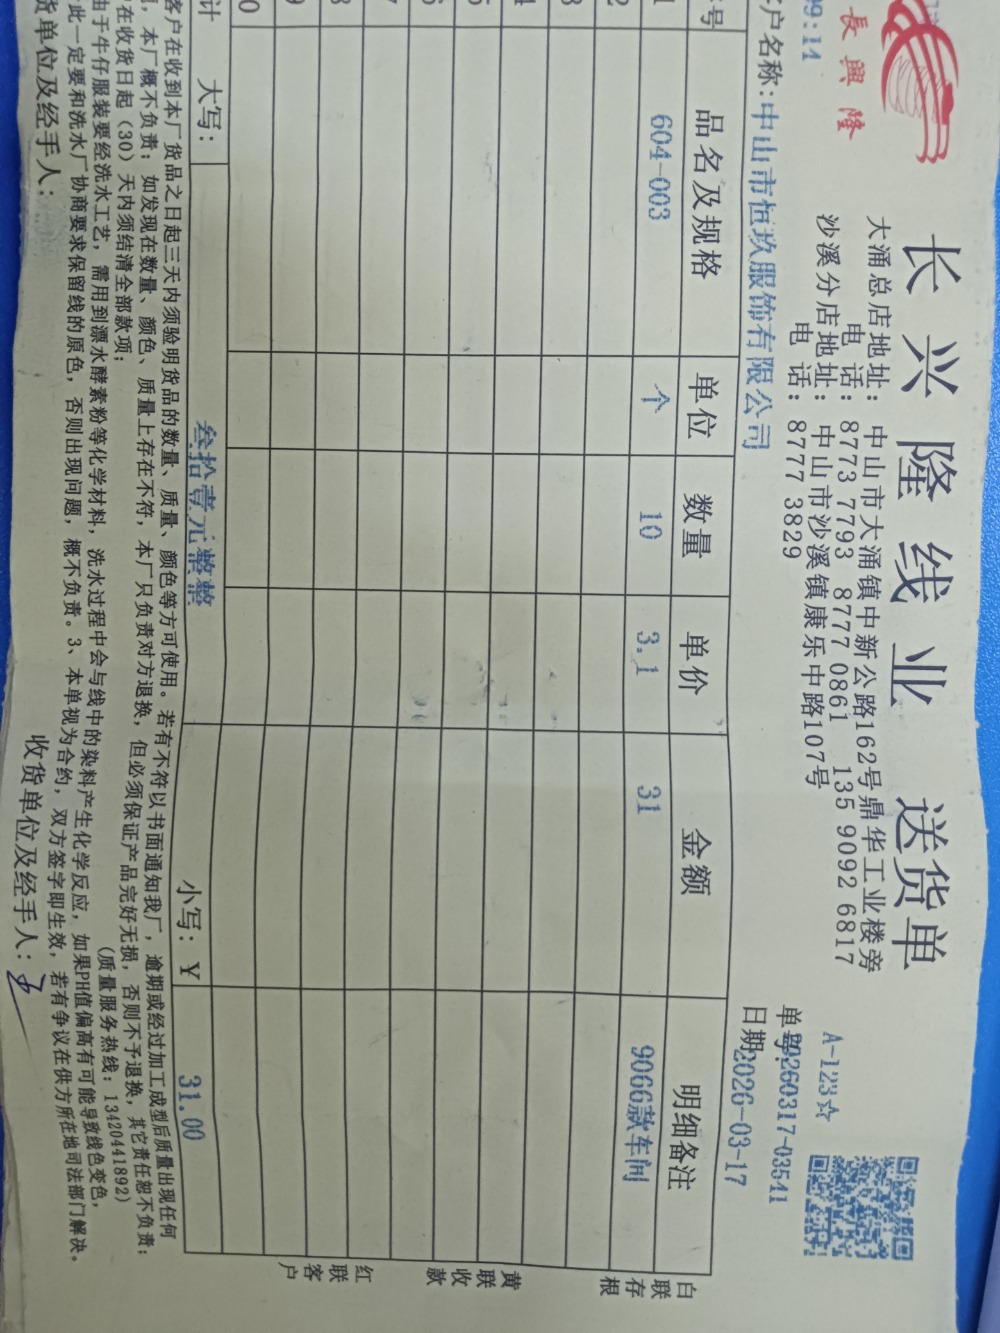 長興隆
長興隆线业 送货单
09:14
大涌总店地址:中山市大涌镇中新公路162号鼎华工业楼旁
电 话:8773 7793 8777 0861 135 9092 6817
沙溪分店地址:中山市沙溪镇康乐中路107号
电 话:8777 3829
A-123☆
单号:20260317-03541
日期2026-03-17
户名称:中山市恒玖服饰有限公司
号 品名及规格 单位 数量 单价 金额 明细备注
1 604-003 个 10 3.1 31 9066款车间
2
3
4
5
6
7
8
9
0
计 大写: 叁拾壹元整整 小写: ¥ 31.00
白联存根
黄联收款
红联客户
客户在收到本厂货品之日起三天内须验明货品的数量、质量、颜色等方可使用。若有不符以书面通知我厂,逾期或经过加工成型后质量出现任何
,本厂概不负责;如发现在数量、颜色、质量上存在不符,本厂只负责对方退换,但必须保证产品完好无损,否则不予退换,其它责任恕不负责;
在收货日起(30)天内须结清全部款项; (质量服务热线:13420441892)
由于牛仔服装要经洗水工艺,需用到漂水酵素粉等化学材料,洗水过程中会与线中的染料产生化学反应,如果PH值偏高有可能导致线色变色,
此一定要和洗水厂协商要求保留线的原色,否则出现问题,概不负责。3、本单视为合约,双方签字即生效,若有争议在供方所在地司法部门解决。
货单位及经手人: 收货单位及经手人: